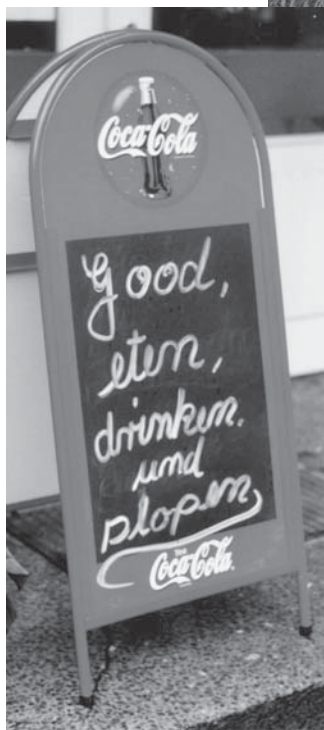 Coca-Cola
Good,
eten,
drinken.
und
plopen
The
Coca-Cola